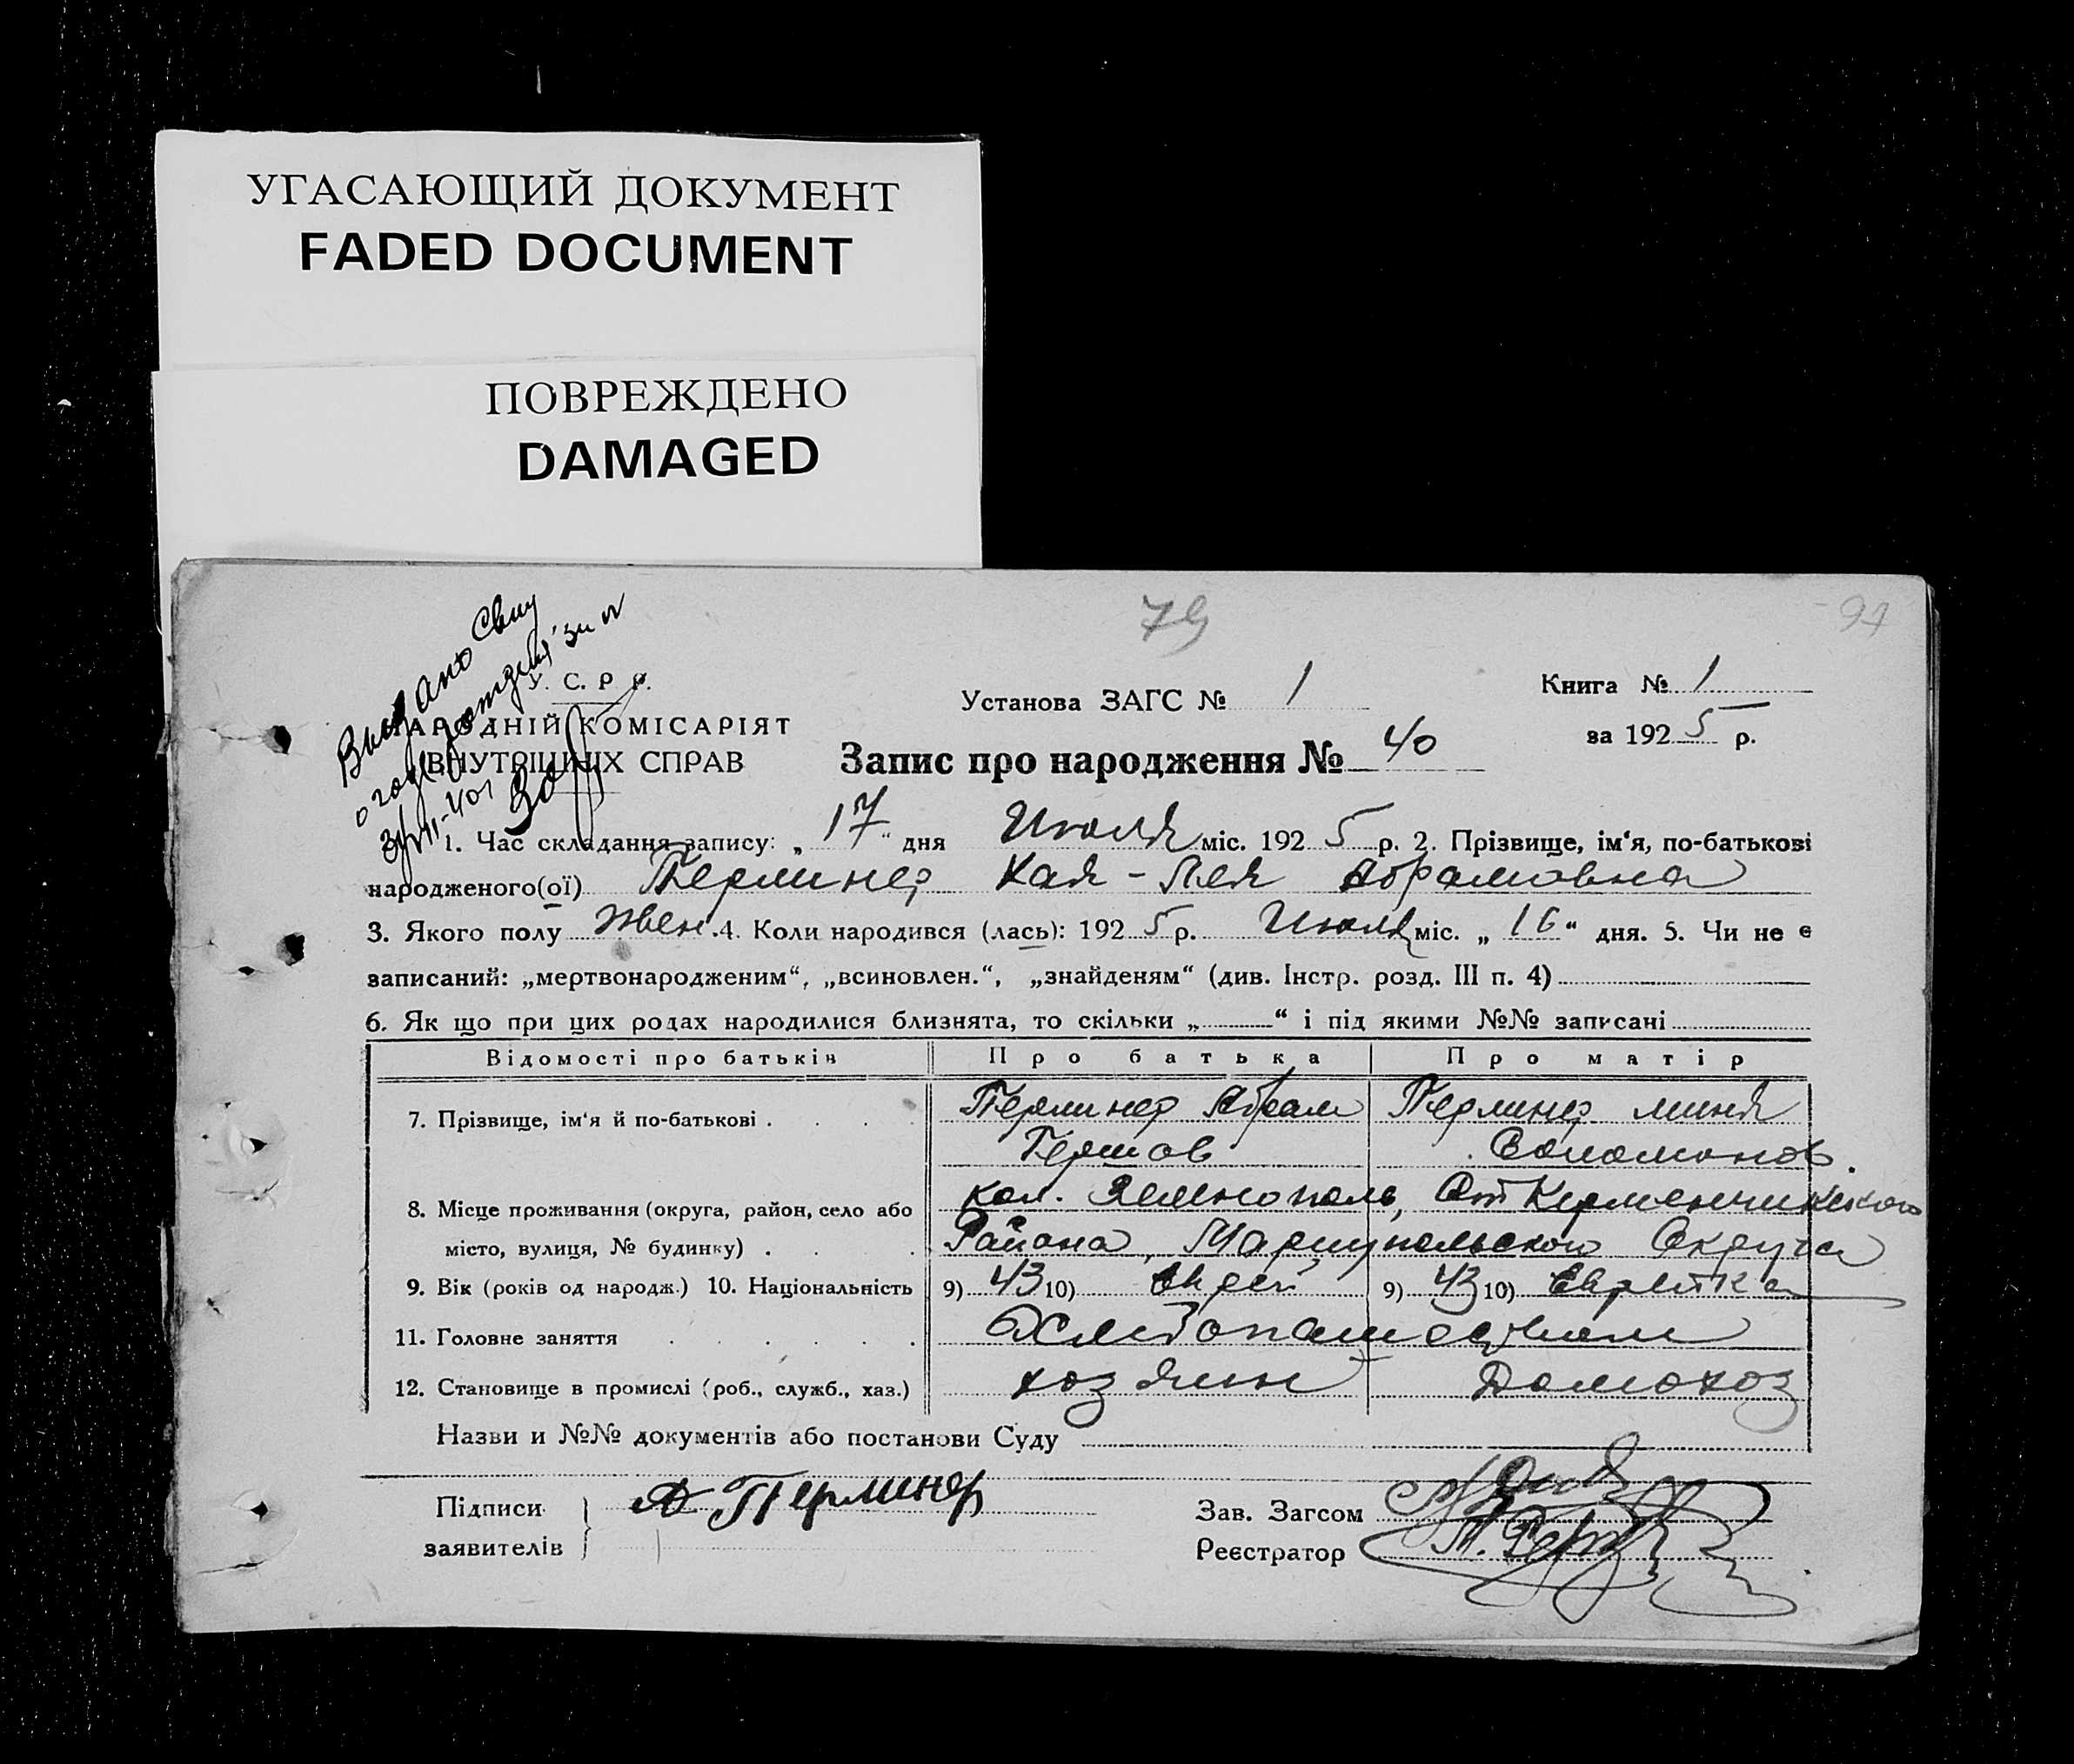 УГАСАЮЩИЙ ДОКУМЕНТ
FADED DOCUMENT
ПОВРЕЖДЕНО
DAMAGED
79
97
Выдано Свид
о год
У. С. Р. Р.
НАРОДНІЙ КОМІСАРІЯТ
ВНУТРІШНІХ СПРАВ
Установа ЗАГС № 1
Книга № 1
за 1925 р.
Запис про народження № 40
1. Час складання запису: „17“ дня Июля міс. 1925 р. 2. Прізвище, ім‘я, по-батькові
народженого(ої) Перминер Хая-Лея Абрамовна
3. Якого полу Жен. 4. Коли народився (лась): 1925 р. Июля міс. „16“ дня. 5. Чи не є
записаний: „мертвонародженим“, „всиновлен.“, „знайденям“ (див. Інстр. розд. III п. 4)
6. Як що при цих родах народилися близнята, то скільки „ “ і під якими №№ записані
Відомості про батьків Про батька Про матір
7. Прізвище, ім‘я й по-батькові Перминер Абрам Перминер Миня
Гершов Соломонов.
8. Місце проживання (округа, район, село або кол. Зеленополь, Ст Керменчикского
місто, вулиця, № будинку) Района, Мариупольского Округа
9. Вік (років од народж.) 10. Національність 9) 43 10) Еврей 9) 43 10) Еврейка
11. Головне заняття Хлебопашеством
12. Становище в промислі (роб., служб., хаз.) хозяин Домохоз
Назви и №№ документів або постанови Суду
Підписи А Перминер
заявителів
Зав. Загсом
Реєстратор